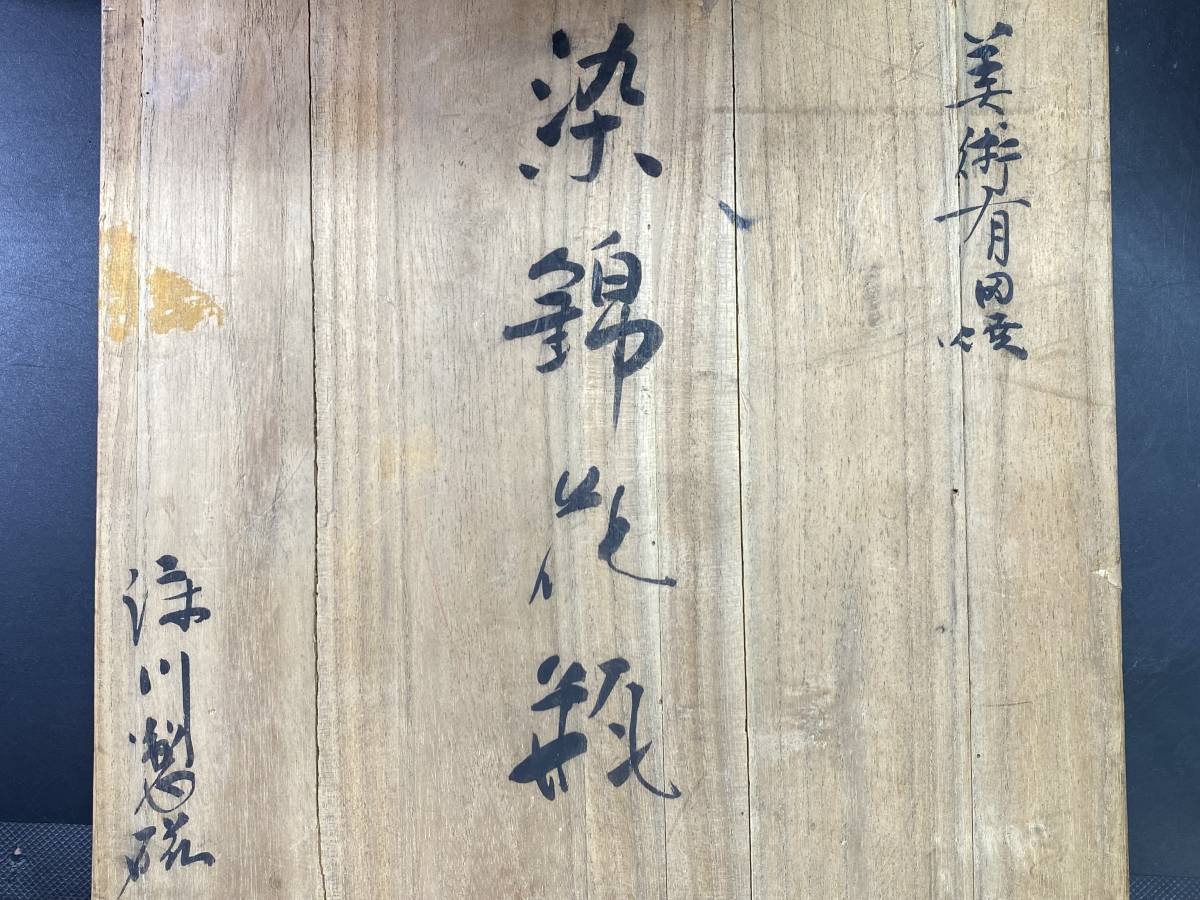 美術有田焼
染錦花瓶
深川製磁